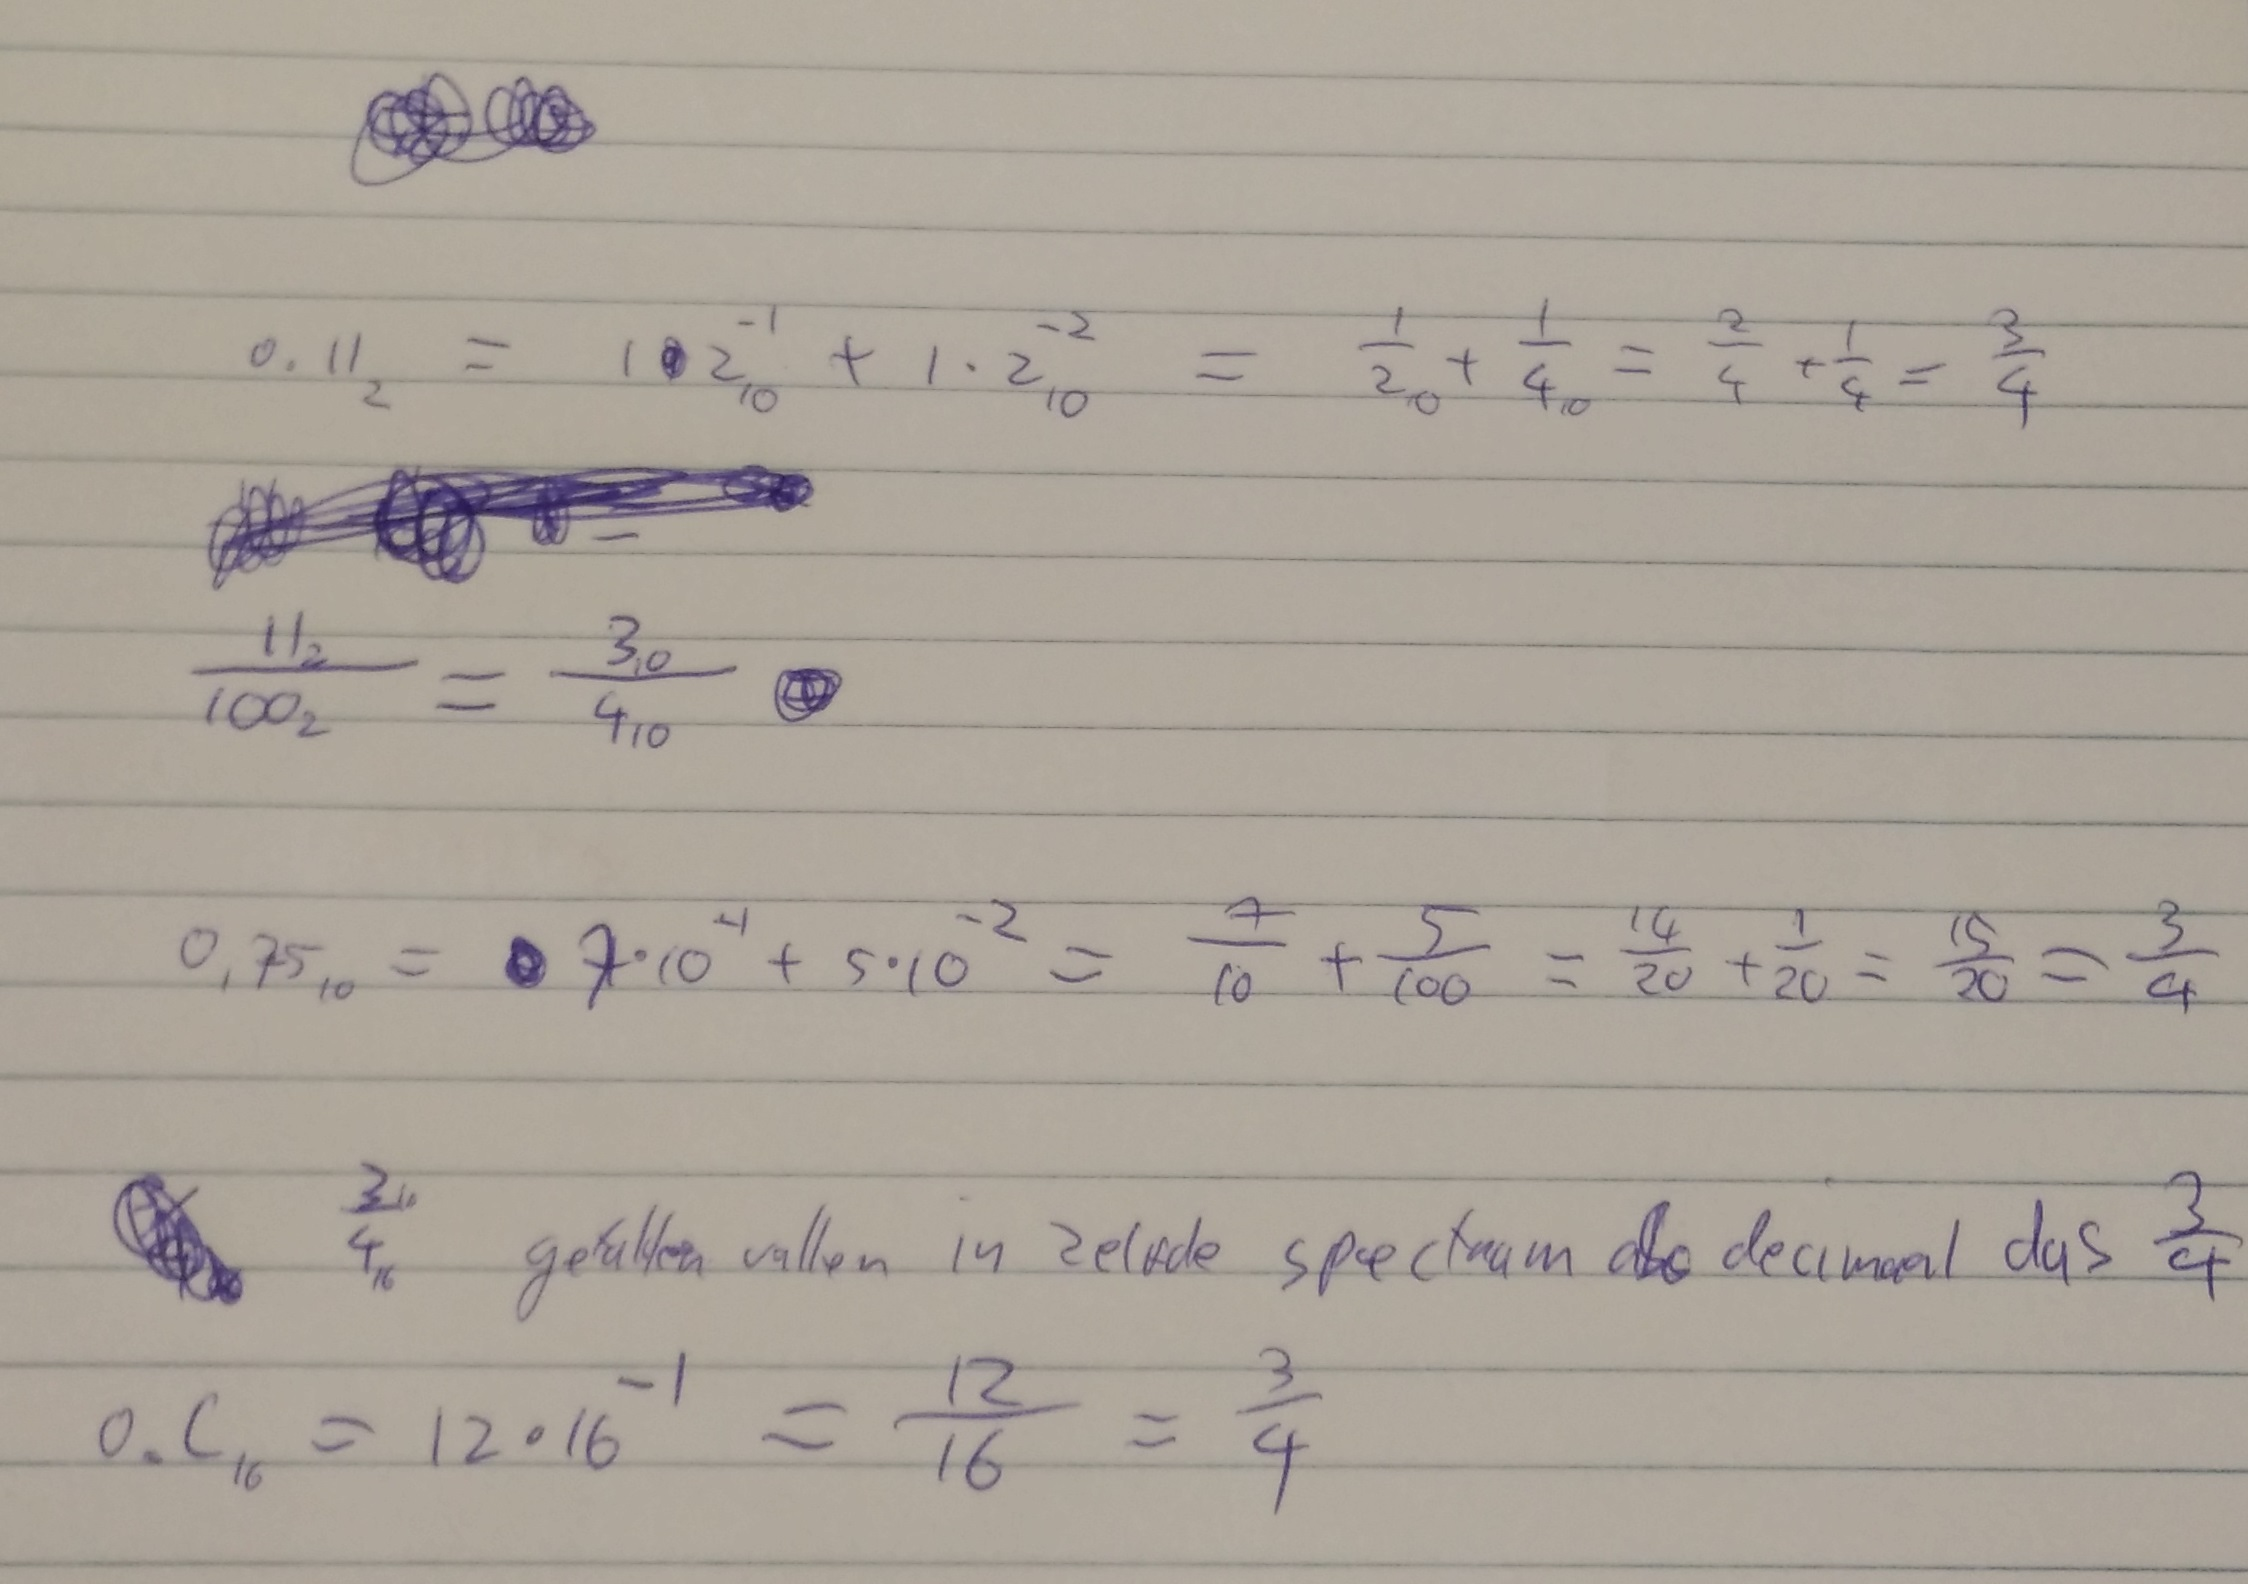 0.11₂ = 1 · 2₁₀⁻¹ + 1 · 2₁₀⁻² = 1/2₁₀ + 1/4₁₀ = 2/4 + 1/4 = 3/4
11₂/100₂ = 3₁₀/4₁₀
0,75₁₀ = 7·10⁻¹ + 5·10⁻² = 7/10 + 5/100 = 14/20 + 1/20 = 15/20 = 3/4
3₁₆/4₁₆ getallen vallen in zelfde spectrum als decimaal dus 3/4
0.C₁₆ = 12·16⁻¹ = 12/16 = 3/4